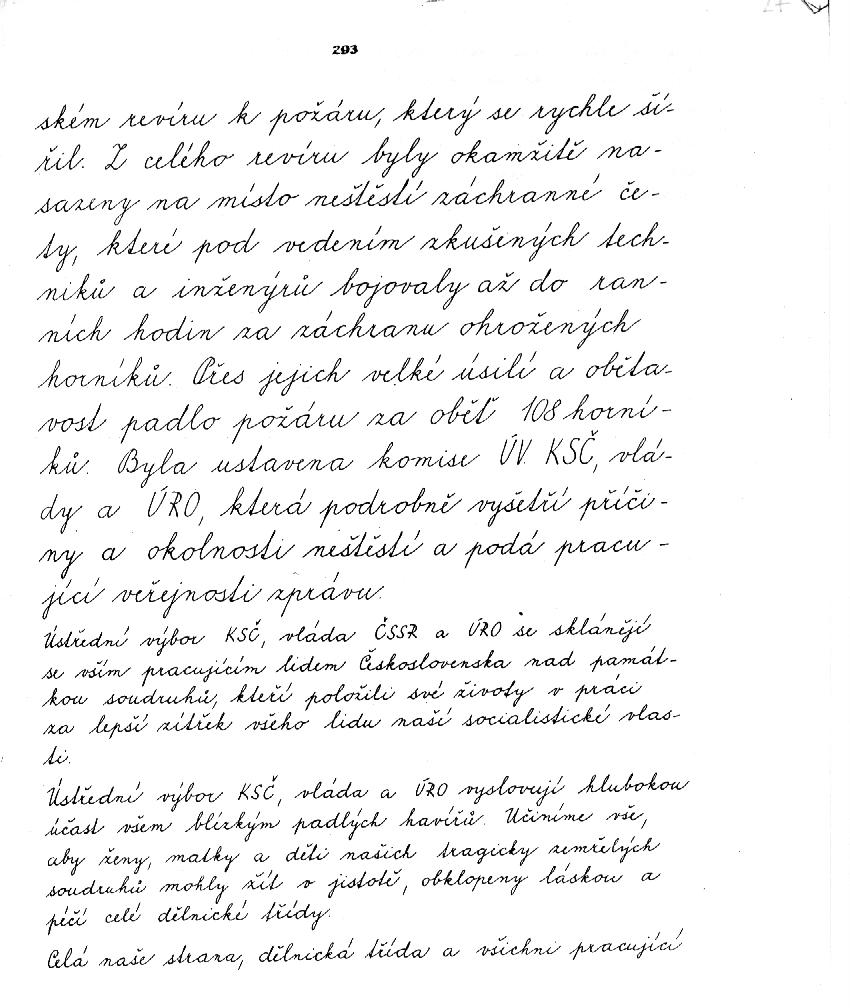 293
ském revíru k požáru, který se rychle ší-
řil. Z celého revíru byly okamžitě na-
sazeny na místo neštěstí záchranné če-
ty, které pod vedením zkušených tech-
niků a inženýrů bojovaly až do ran-
ních hodin za záchranu ohrožených
horníků. Přes jejich velké úsilí a oběta-
vost padlo požáru za oběť 108 horní-
ků. Byla ustavena komise ÚV. KSČ, vlá-
dy a ÚRO, která podrobně vyšetří příči-
ny a okolnosti neštěstí a podá pracu-
jící veřejnosti zprávu.
Ústřední výbor KSČ, vláda ČSSR a ÚRO se sklánějí
se vším pracujícím lidem Československa nad památ-
kou soudruhů, kteří položili své životy v práci
za lepší zítřek všeho lidu naší socialistické vlas-
ti.
Ústřední výbor KSČ, vláda a ÚRO vyslovují hlubokou
účast všem blízkým padlých havířů. Učiníme vše,
aby ženy, matky a děti našich tragicky zemřelých
soudruhů mohly žít v jistotě, obklopeny láskou a
péčí celé dělnické třídy.
Celá naše strana, dělnická třída a všichni pracující